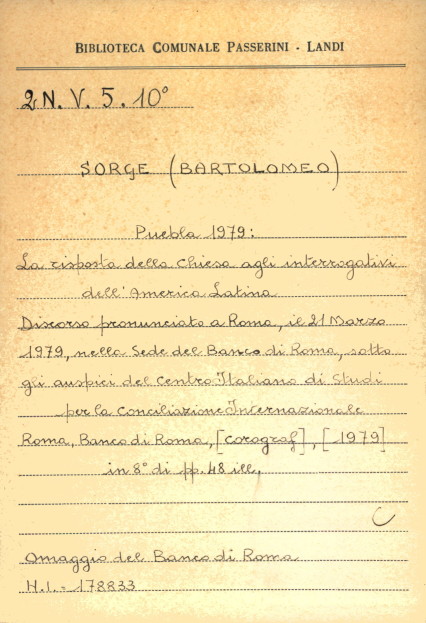 BIBLIOTECA COMUNALE PASSERINI - LANDI
2 N. V. 5. 10°
SORGE (BARTOLOMEO)
Puebla 1979:
La risposta della Chiesa agli interrogativi
dell'America Latina
Discorso pronunciato a Roma, il 21 Marzo
1979, nella Sede del Banco di Roma, sotto
gli auspici del Centro Italiano di Studi
per la Conciliazione Internazionale
Roma, Banco di Roma, [corograf], [1979]
in 8° di pp. 48 ill.
C
Omaggio del Banco di Roma
H.I. - 178833